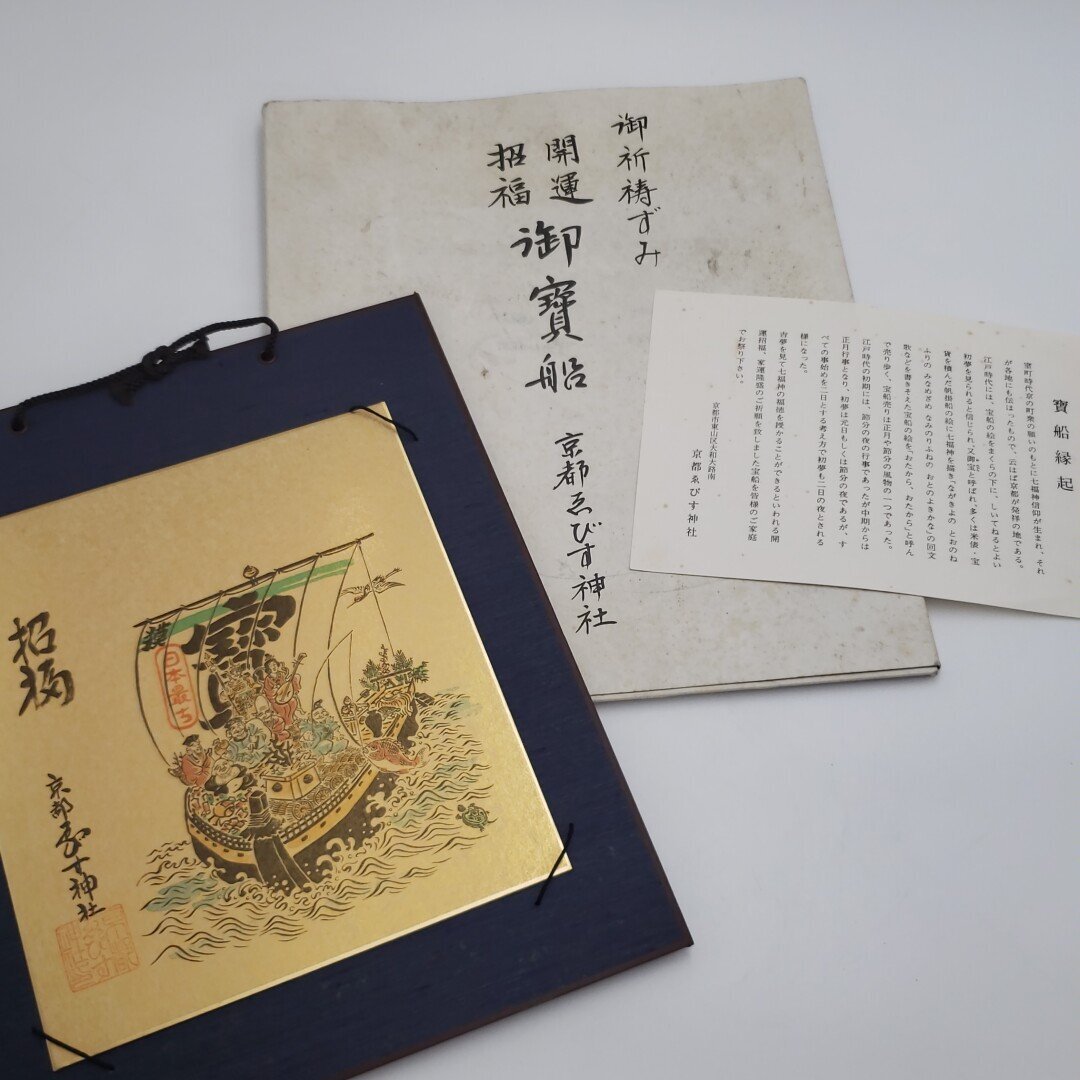 御祈祷ずみ
開運
招福
御寶船
京都ゑびす神社
寶船縁起
室町時代京の町衆の願いのもとに七福神信仰が生まれ、それ
が各地にも伝はったもので、云はば京都が発祥の地である。
江戸時代には、宝船の絵をまくらの下に、しいてねるとよい
初夢を見られると信じられ、又御宝と呼ばれ、多くは米俵・宝
貨を積んだ帆掛船の絵に七福神を描き「ながきよの とおのね
ふりの みなめざめ なみのりふねの おとのよきかな」の回文
歌などを書きそえた宝船の絵を「おたから、おたから」と呼ん
で売り歩く、宝船売りは正月や節分の風物の一つであった。
江戸時代の初期には、節分の夜の行事であったが中期からは
正月行事となり、初夢は元日もしくは節分の夜であるが、す
べての事始めを二日とする考え方で初夢も二日の夜とされる
様になった。
吉夢を見て七福神の福徳を授かることができるといわれる開
運招福、家運隆盛のご祈願を致しました宝船を皆様のご家庭
でお祭り下さい。
京都市東山区大和大路南
京都ゑびす神社
寶
日本最古
招福
京都ゑびす神社